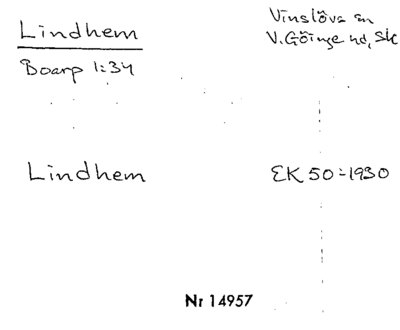 Lindhem
Vinslövs sn
V. Göinge hd, Sk
Boarp 1:34
Lindhem
EK 50 = 1930
Nr 14957